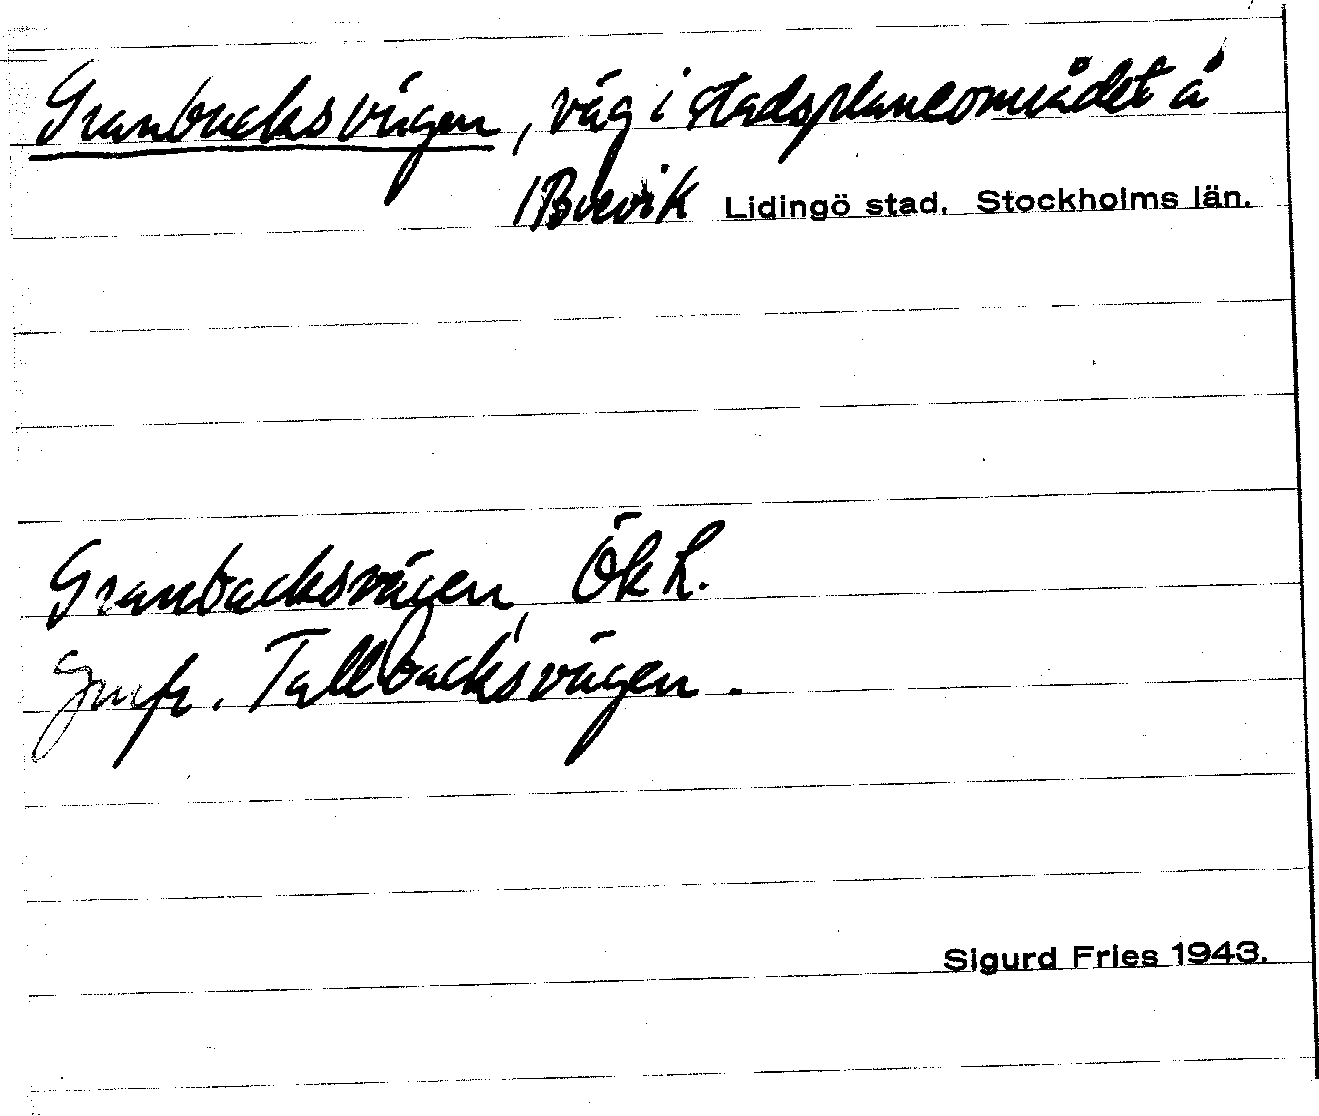 Granbacksvägen, väg i stadsplaneområdet å
/Brevik Lidingö stad. Stockholms län.
Granbacksvägen, ÖkL.
Jmfr. Tallbacksvägen.
Sigurd Fries 1943.